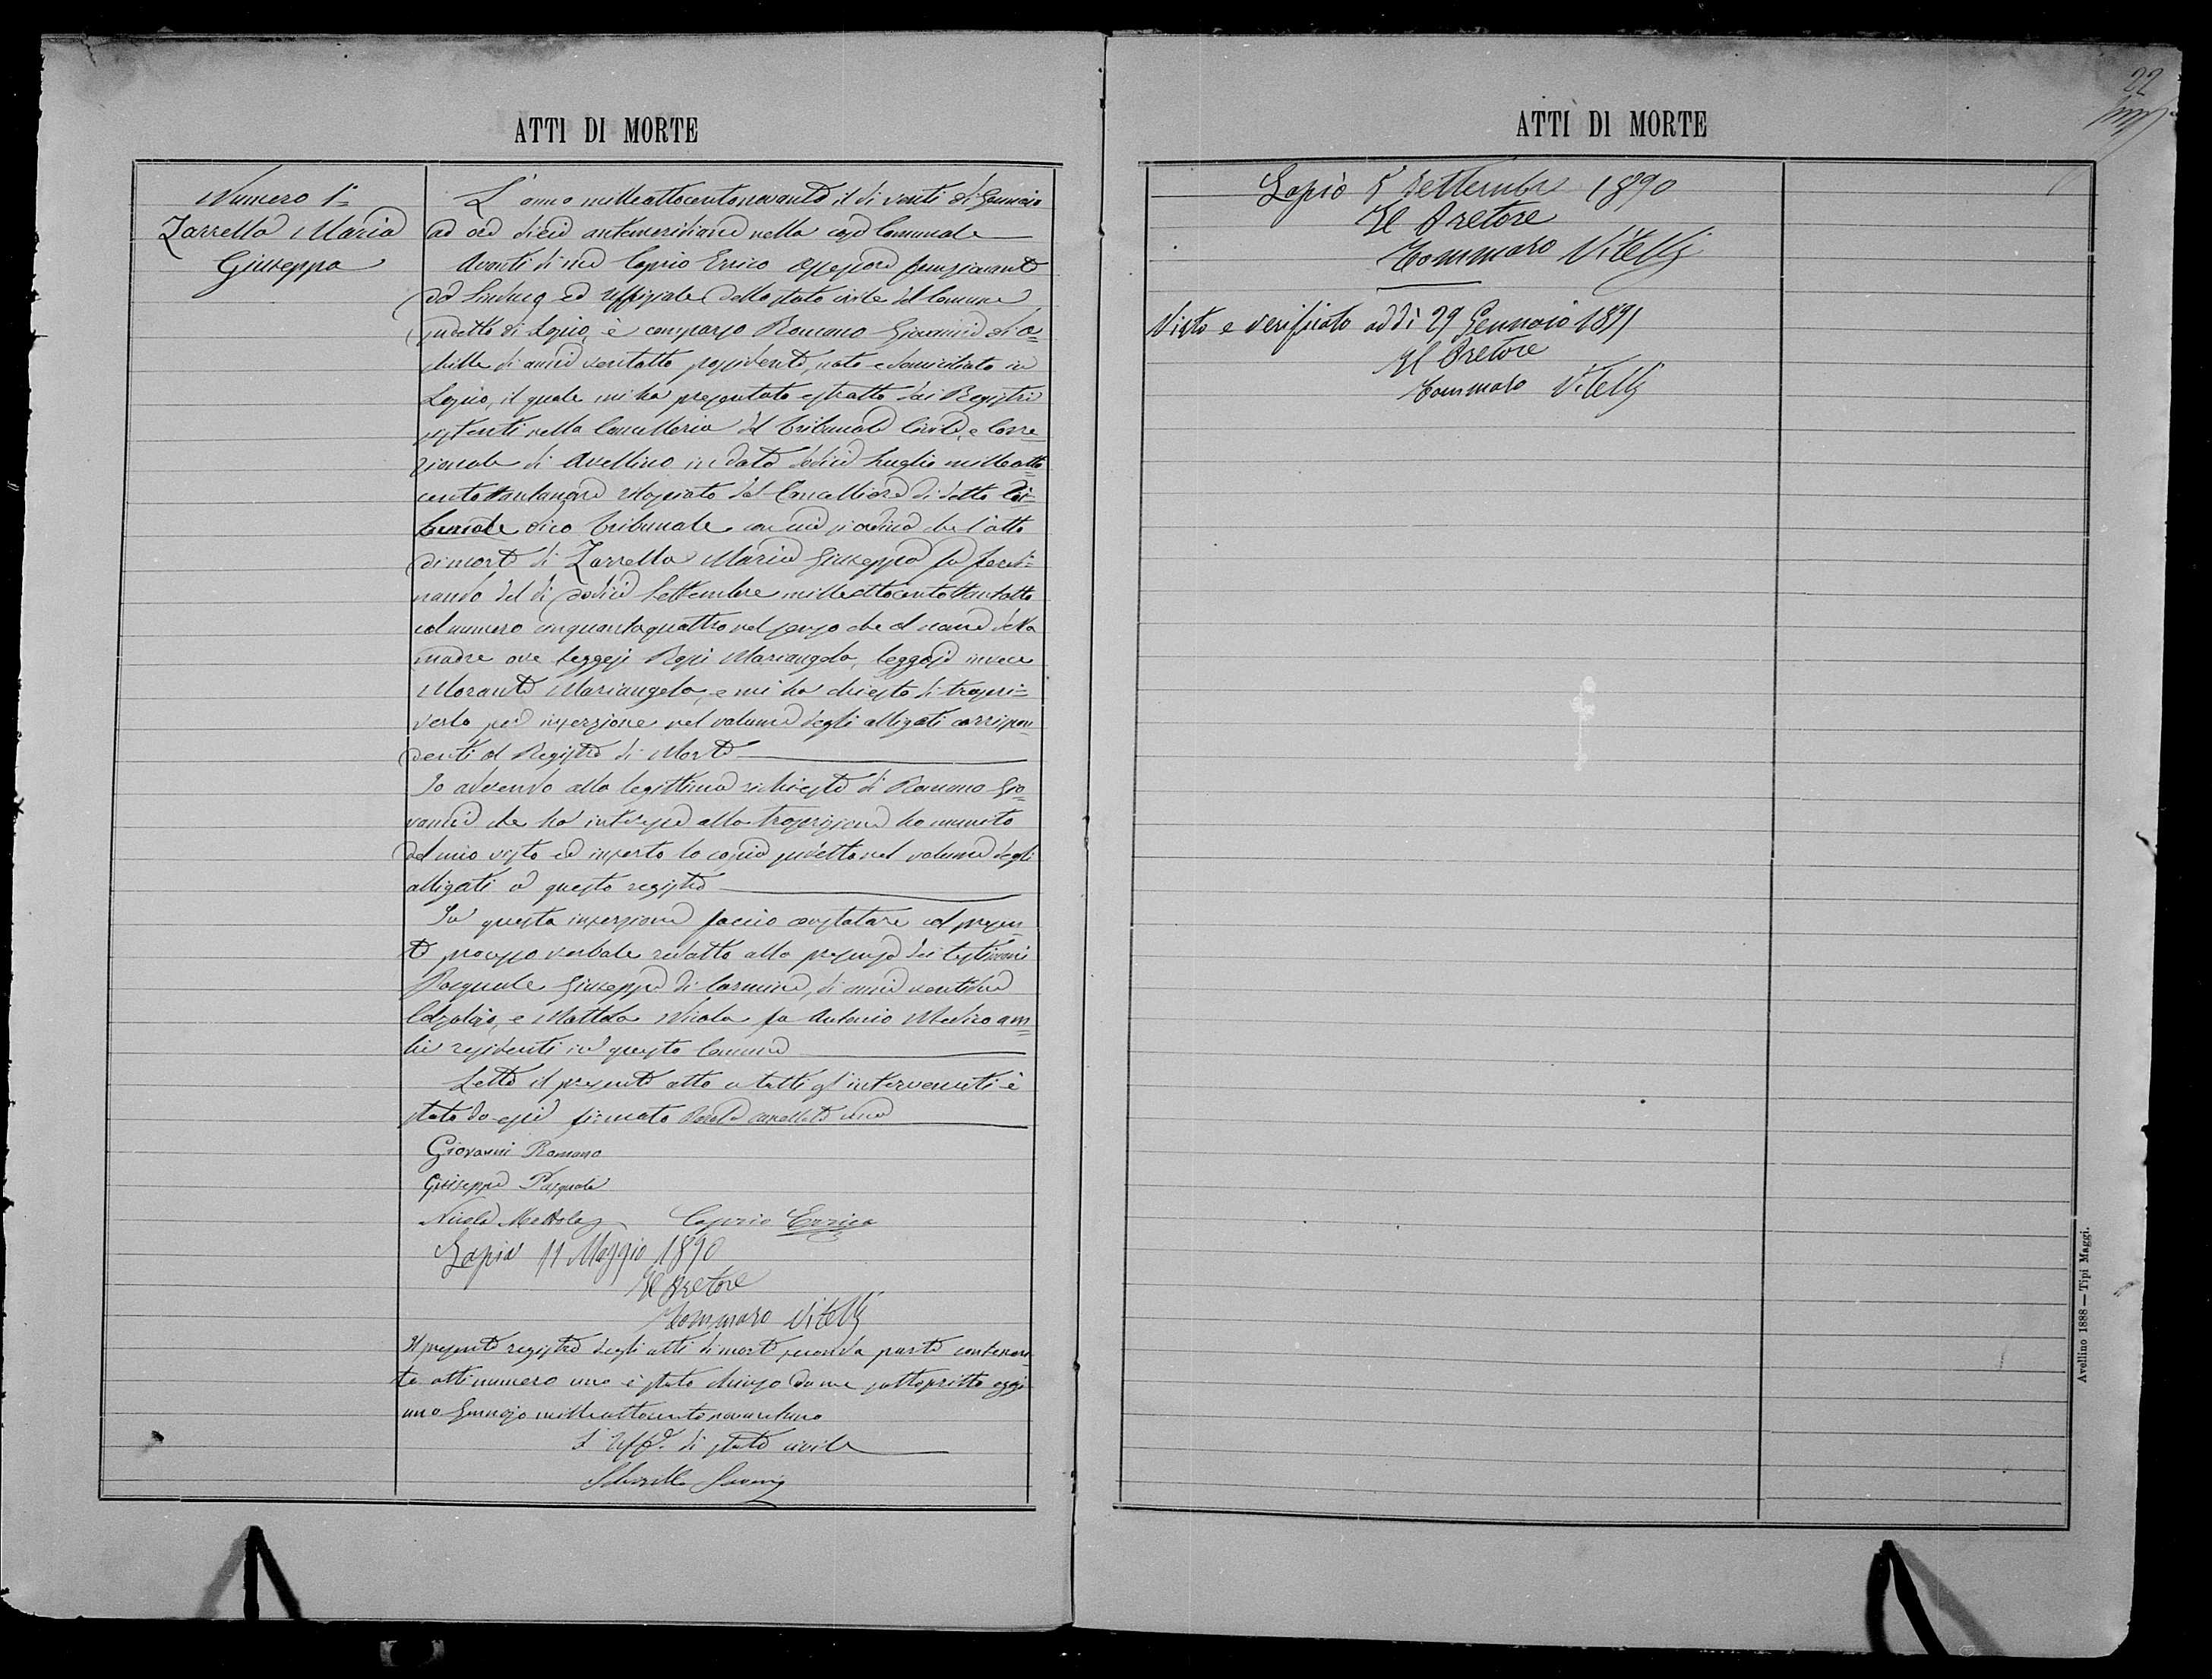 ATTI DI MORTE
Numero 1°
Zarrella Maria
Giuseppa
L'anno milleottocentonovanta il dì venti di Gennaio
ad ore dieci antimeridiane nella casa Comunale
Avanti di me Caprio Errico Assessore funzionante
da Sindaco ed uffiziale dello stato civile del Comune
sudetto di Lapio, è comparso Romano Giovanni di A=
chille di anni ventotto possidente, nato e domiciliato in
Lapio, il quale mi ha presentato estratto dai Registri
sistenti nella Cancelleria del Tribunale Civile, e Corre
zionale di Avellino in data dodici Luglio milleotto
centottantanove rilasciato dal Cancelliere di detto Tri=
bunale dico Tribunale con cui si ordina che l'atto
di morte di Zarrella Maria Giuseppa fu Ferdi=
nando del dì dodici Settembre milleottocentottantotto
col numero cinquantaquattro nel senso che al nome della
madre ove leggesi Mariangela, leggasi invece
Morante Mariangela, e mi ha chiesto di trascri=
verlo per inserzione nel volume degli alligati corrispon
denti al Registro di Morte
Io aderendo alla legittima richiesta di Romano Gio=
vanni che ha interesse alla trascrizione ho munito
del mio visto ed inserto la copia sudetta nel volume degli
alligati a questo registro
Di questa inserzione faccio constatare col presen=
te processo verbale redatto alla presenza dei testimoni
Pasquale Giuseppe di Carmine, di anni
Calzolajo, e Mattola Nicola fu Antonio Medico am=
bi residenti in questo Comune
Letto il presente atto a tutti gl'intervenuti è
stato da essi firmato Parola cancellata una
Giovanni Romano
Giuseppe Pasquale
Nicola Mattola Caprio Errico
Lapio 11 Maggio 1890
Il Pretore
Tommaso Vitelli
Il presente registro degli atti di morte seconda parte contenen=
te atti numero uno è stato chiuso da me sottoscritto oggi
uno Gennajo milleottocentonovantuno
L'Uff.e di stato civile
ATTI DI MORTE
22
Lapio 5 Settembre 1890
Il Pretore
Tommaso Vitelli
Visto e verificato addì 29 Gennaio 1891
Il Pretore
Tommaso Vitelli
Avellino 1888 — Tipi Maggi.